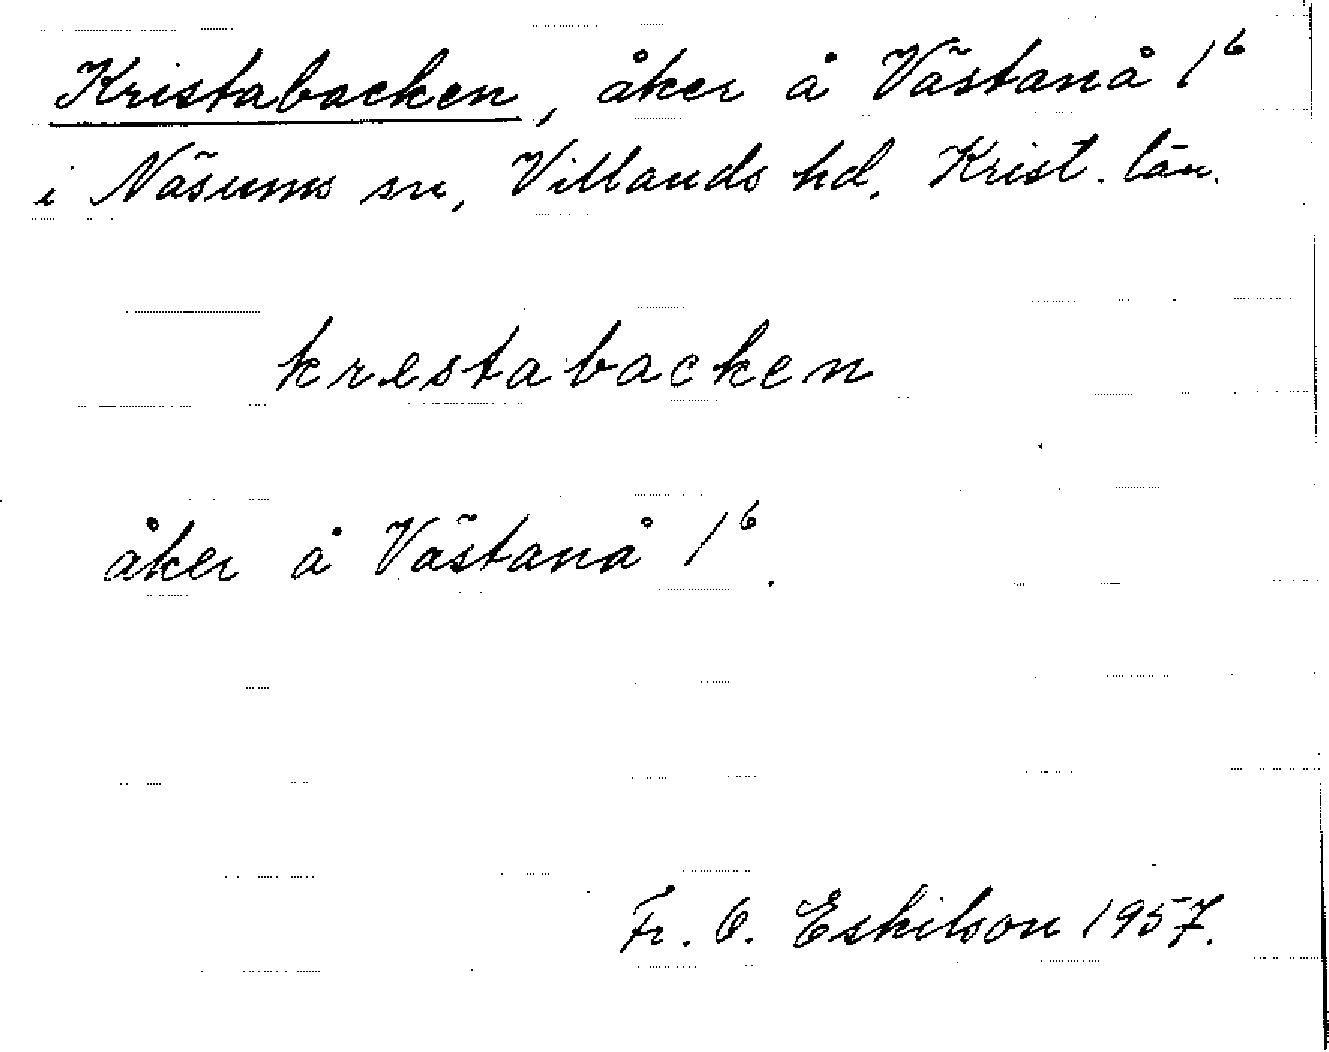 Kristabacken, åker å Västanå 1⁶
i Näsums sn, Villands hd. Krist. län.
krestabacken
åker å Västanå 1⁶.
Fr. O. Eskilson 1957.